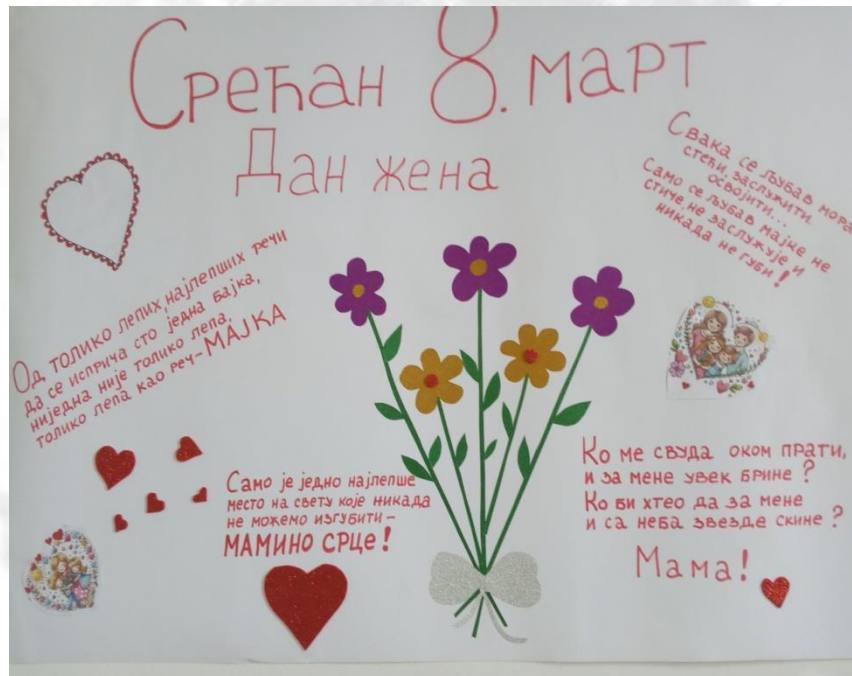 Срећан 8. март
Дан жена
Свака се љубав мора
стећи, заслужити
освојити...
Само се љубав мајке не
стиче, не заслужује и
никада не губи!
Од толико лепих, најлепших речи
да се исприча сто једна бајка,
ниједна није толико лепа,
толико лепа као реч-МАЈКА
Само је једно најлепше
место на свету које никада
не можемо изгубити-
МАМИНО СРЦЕ!
Ко ме свуда оком прати,
и за мене увек брине?
Ко би хтео да за мене
и са неба звезде скине?
Мама!